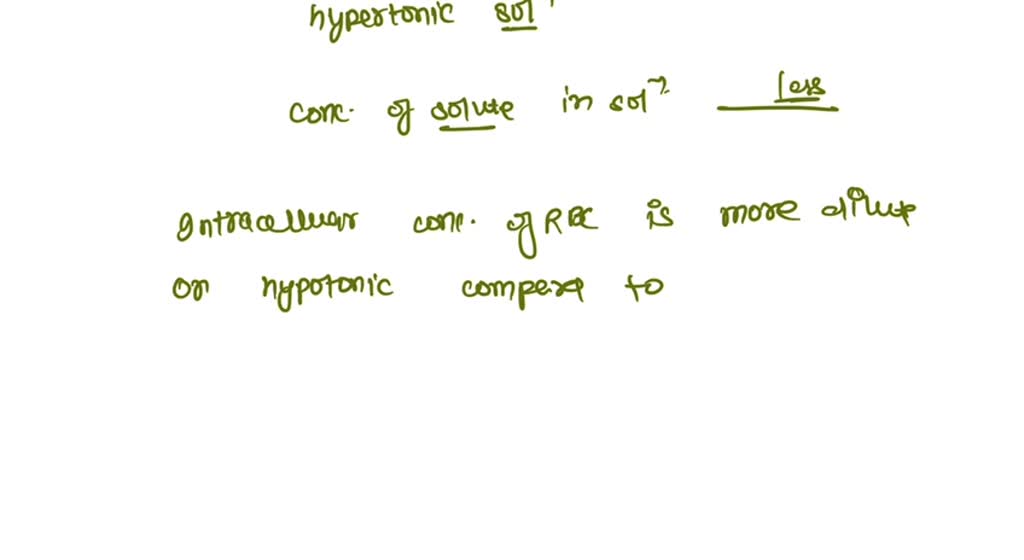 hypertonic sol^n
conc. of solute in sol^n less
Intracelluar conc. of RBC is more dilute
or hypotonic compere to